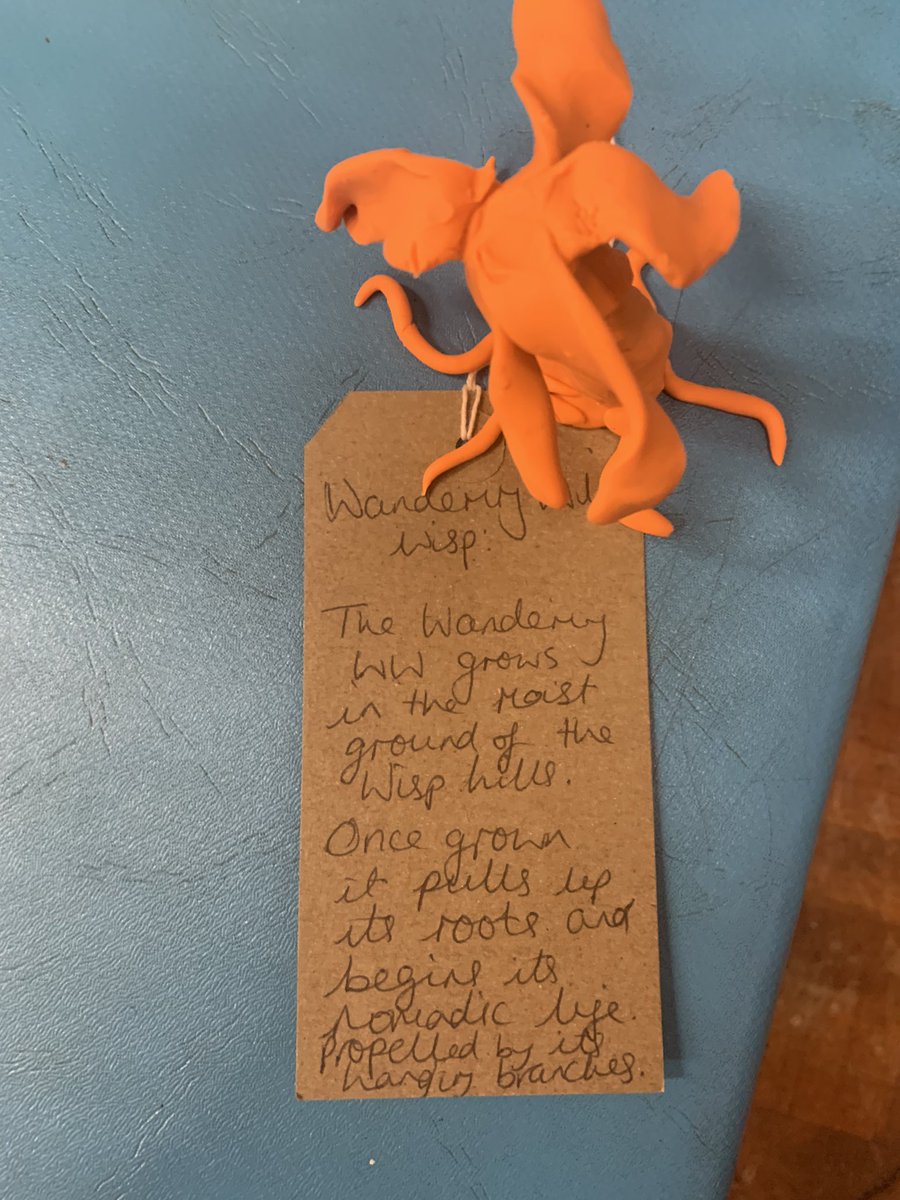 Wandering
Wisp:
The Wandering
WW grows
in the moist
ground of the
Wisp hills.
Once grown
it pulls up
its roots and
begins its
nomadic life.
Propelled by its
hanging branches.